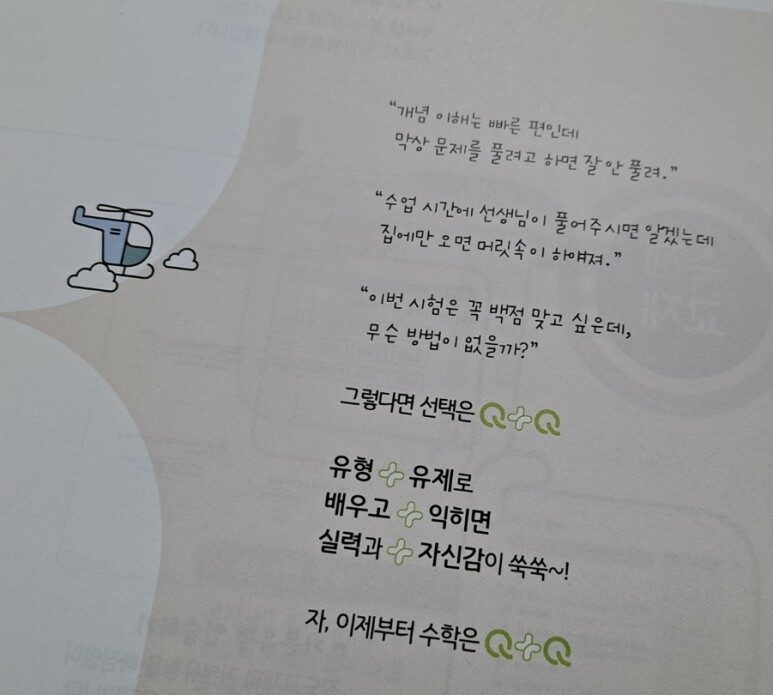 “개념 이해는 빠른 편인데
막상 문제를 풀려고 하면 잘 안 풀려.”
“수업 시간에 선생님이 풀어주시면 알겠는데
집에만 오면 머릿속이 하얘져.”
“이번 시험은 꼭 백점 맞고 싶은데,
무슨 방법이 없을까?”
그렇다면 선택은 Q+Q
유형 + 유제로
배우고 + 익히면
실력과 + 자신감이 쑥쑥~!
자, 이제부터 수학은 Q+Q